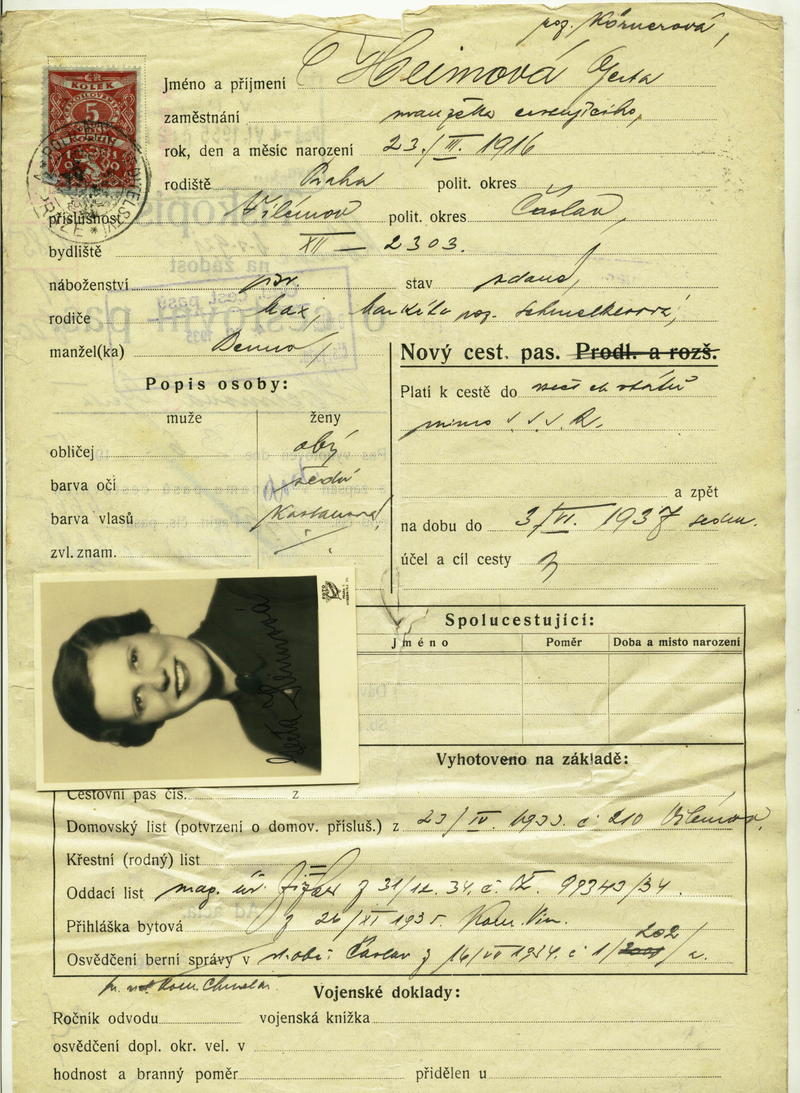 roz. Körnerová,
Jméno a příjmení Heimová Gerta
zaměstnání manželka
rok, den a měsíc narození 23./III. 1916
rodiště Praha polit. okres
příslušnost Vilémov polit. okres Čáslav,
bydliště XII — 2303.
náboženství stav vdaná,
rodiče Max, Markéta roz.
manžel(ka) Benno,
Popis osoby:
muže ženy
obličej obý
barva očí šedá
barva vlasů kaštanová,
zvl. znam.
Nový cest. pas. Prodl. a rozš.
Platí k cestě do všech států
mimo S.S.S.R.
a zpět
na dobu do 3/VI. 1937
účel a cíl cesty
KOLEK
5
Gerta Heimová
Spolucestující:
Jméno Poměr Doba a misto narození
Vyhotoveno na základě:
Cestovní pas čís. z
Domovský list (potvrzení o domov. přísluš.) z 23/IV. 1933. č. 210 Vilémov,
Křestní (rodný) list
Oddací list mag. úř. z 31/12. 34. č. 99343/34.
Přihláška bytová z 26/XI 1935.
Osvědčení berní správy v Čáslav z 16/VII 1934. č 1/202/
Vojenské doklady:
Ročník odvodu vojenská knížka
osvědčení dopl. okr. vel. v
hodnost a branný poměr přidělen u